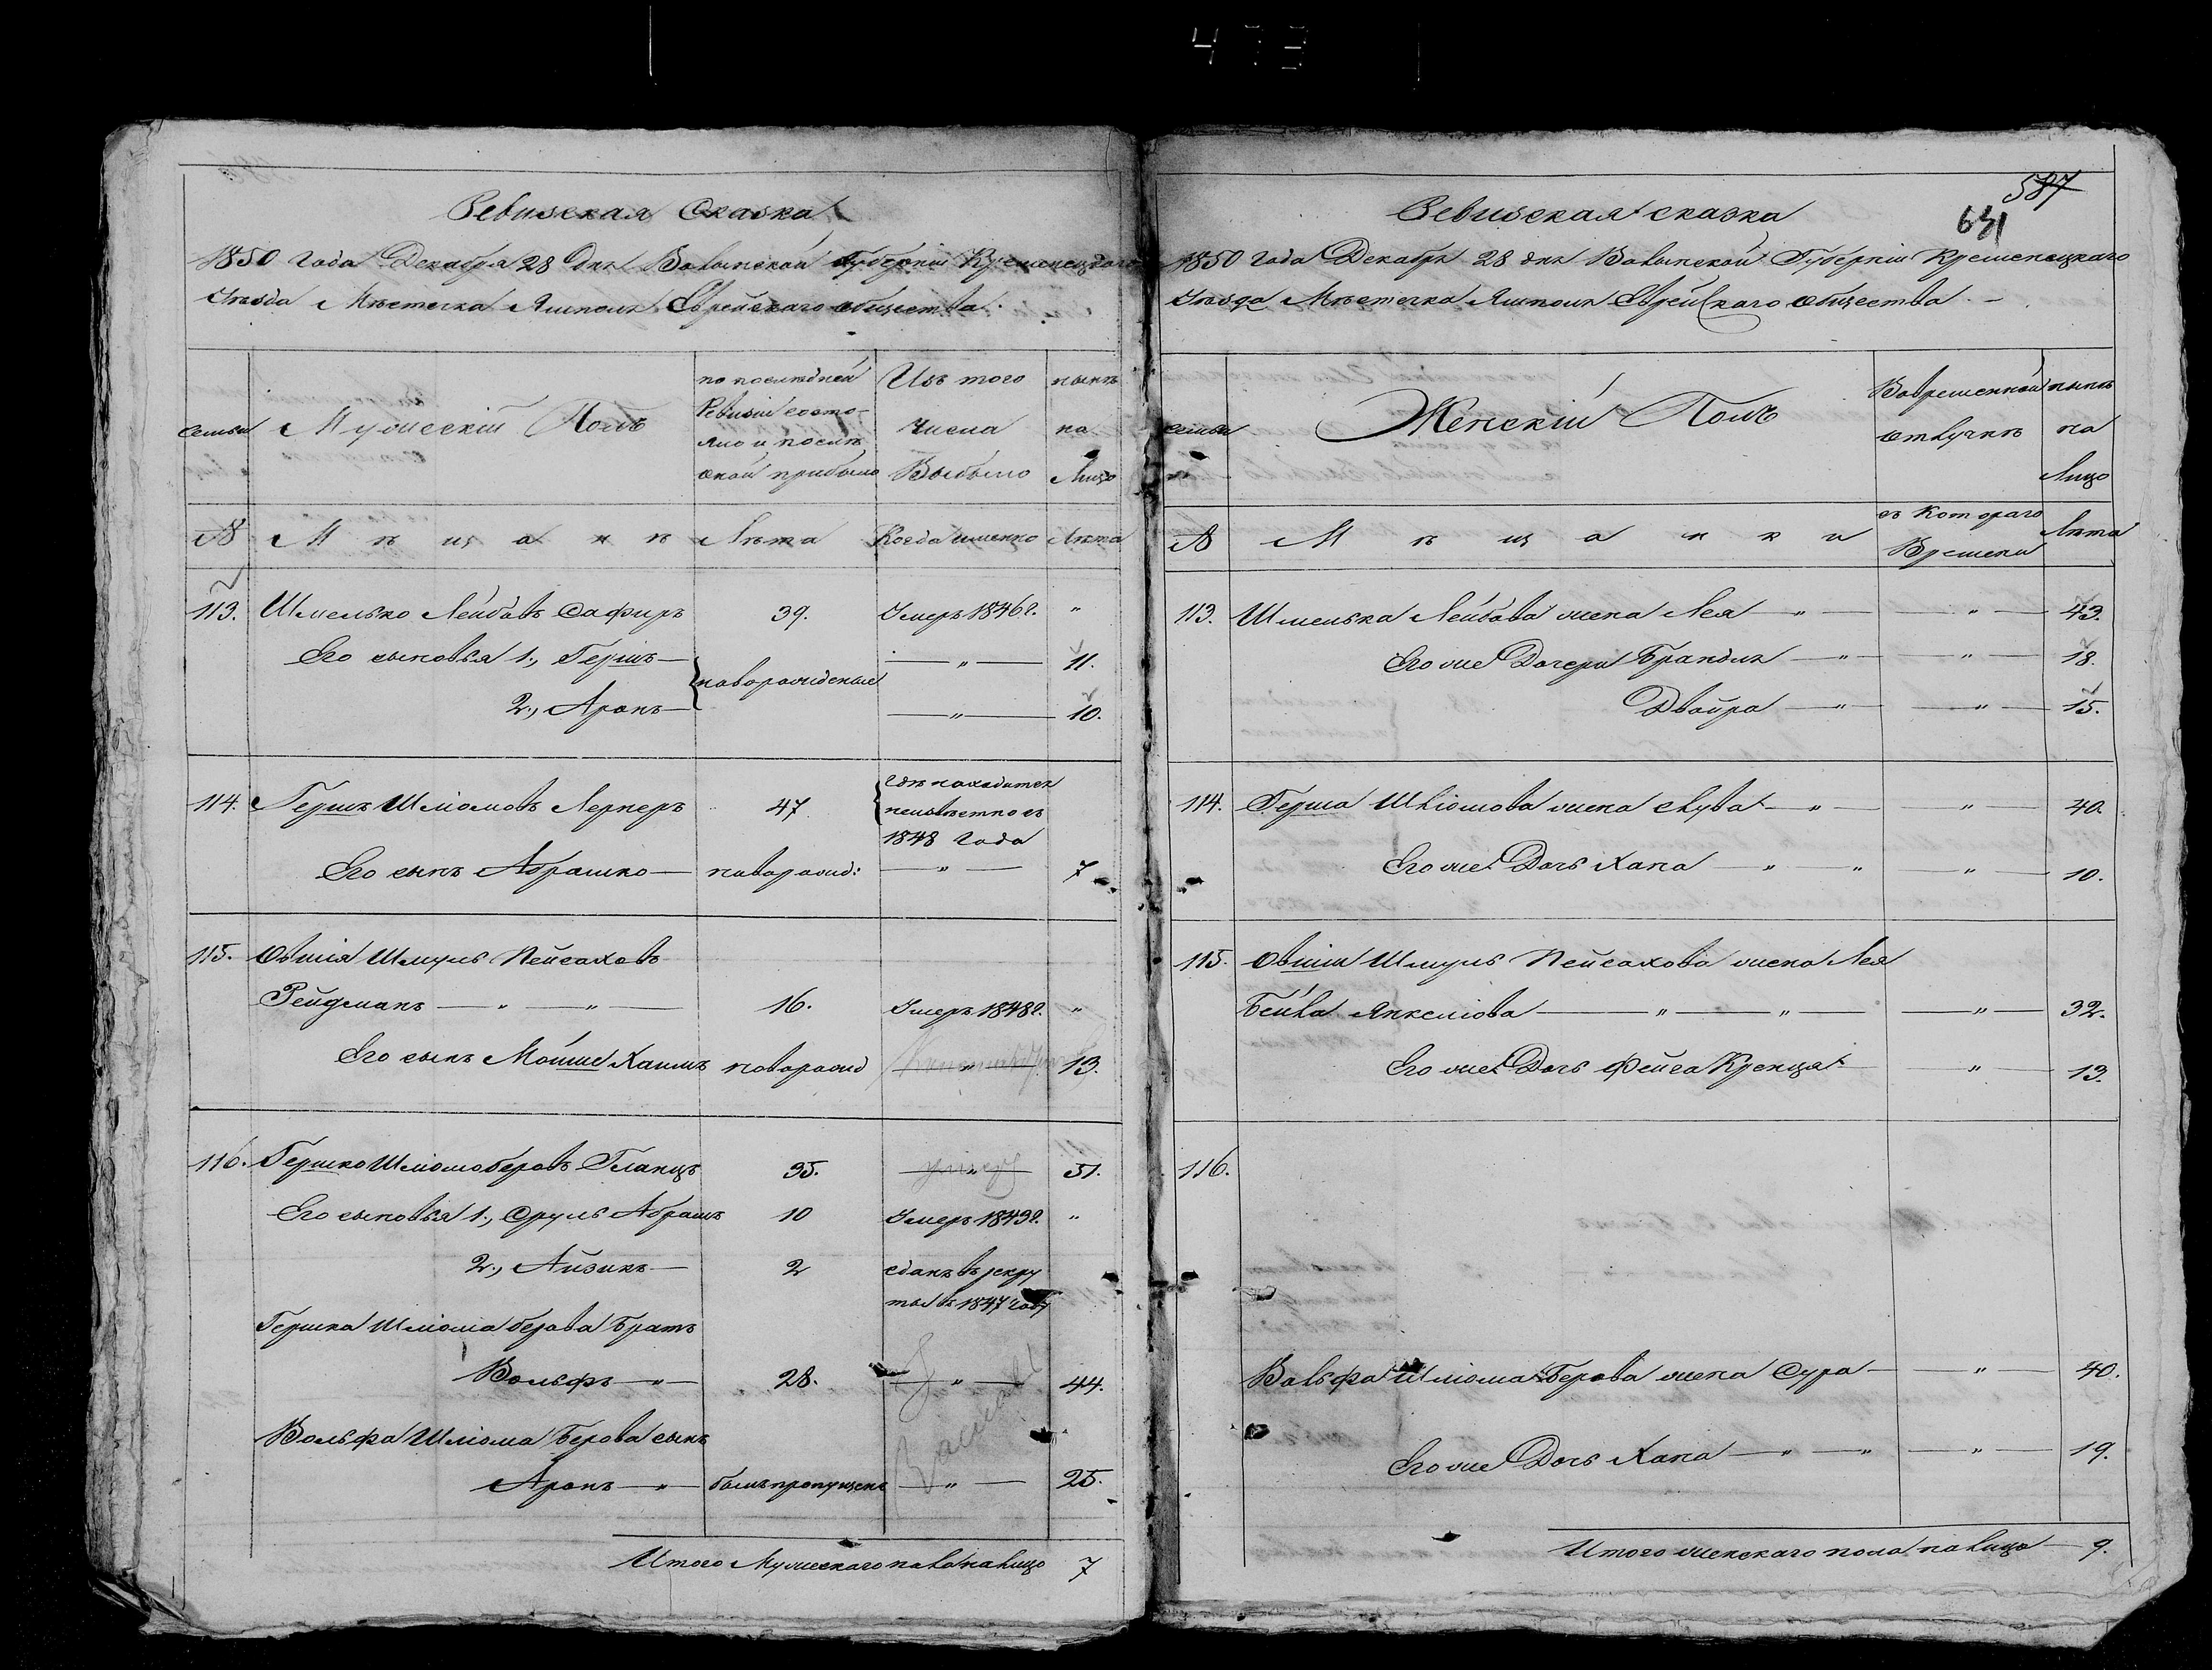 473
Ревизская Сказка
1850 Года Декабря 28 Дня Волынской Губернiи Кременецкаго
Уѣзда Мѣстечка Ямполя Еврейскаго общества.
семьи
Мужескiй Полъ
по послѣдней
Ревизiи состо-
яло и послѣ
оной прибыло
Изъ того
числа
Выбыло
нынѣ
на
Лицо
№
М ѣ щ а н ѣ
Лѣта
Когда именно
Лѣта
113. Шмелько Лейбовъ Сафиръ 39. Умеръ 1846г. "
Его сыновья 1., Гершъ — новорожденые — " — 11.
2., Аронъ — — " — 10.
114. Гершъ Шлiомовъ Лернеръ 47 гдѣ находится
неизвѣстно съ
1848 Года
Его сынъ Абрашко — новорожд: — " — 7
115. Овшiя Шмуль Пейсаховъ
Рейдманъ — " — " — 16. Умеръ 1848г. "
Его сынъ Мойше Хаимъ новорожд — " — 13.
116. Гершко Шлiомоберовъ Гланцъ 35. — " — 51.
Его сыновья 1., Сруль Абрамъ 10 Умеръ 1849г. "
2., Айзикъ — 2 сданъ въ рекру
ты въ 1847 году
Гершка Шлiома берова Братъ
Вольфъ — " — 28. — " — 44.
Вольфа Шлiома Берова сынъ
Аронъ — " — былъ пропущенъ — " — 25.
Итого Мужескаго пола на лицо 7
587
631
Ревизская сказка
1850 Года Декабря 28 дня Волынской Губернiи Кременецкаго
Уѣзда Мѣстечка Ямполя Еврейскаго общества. —
семьи
Женскiй Полъ
Вовременной
отлучкѣ
нынѣ
на
Лицо
№
М ѣ щ а н к и
съ Котораго
Времени
Лѣта
113. Шмелька Лейбова жена Лея — " — — " — 43.
Его же Дочери Брандля — " — — " — 18.
Двойра — " — — " — 15.
114. Герша Шлiомова жена Слува — " — " — 40.
Его же Дочь Хана — " — " — " — 10.
115. Овшiи Шмуль Пейсахова жена Лея
Бейла Янкелiова — " — " — — " — 32.
Его же Дочь Фейга Кренця — " — 13.
116.
Вольфа Шлiома Берова жена Сура — — " — 40.
Его же Дочь Хана — " — " — " — 19.
Итого женскаго пола на лицо — 9.